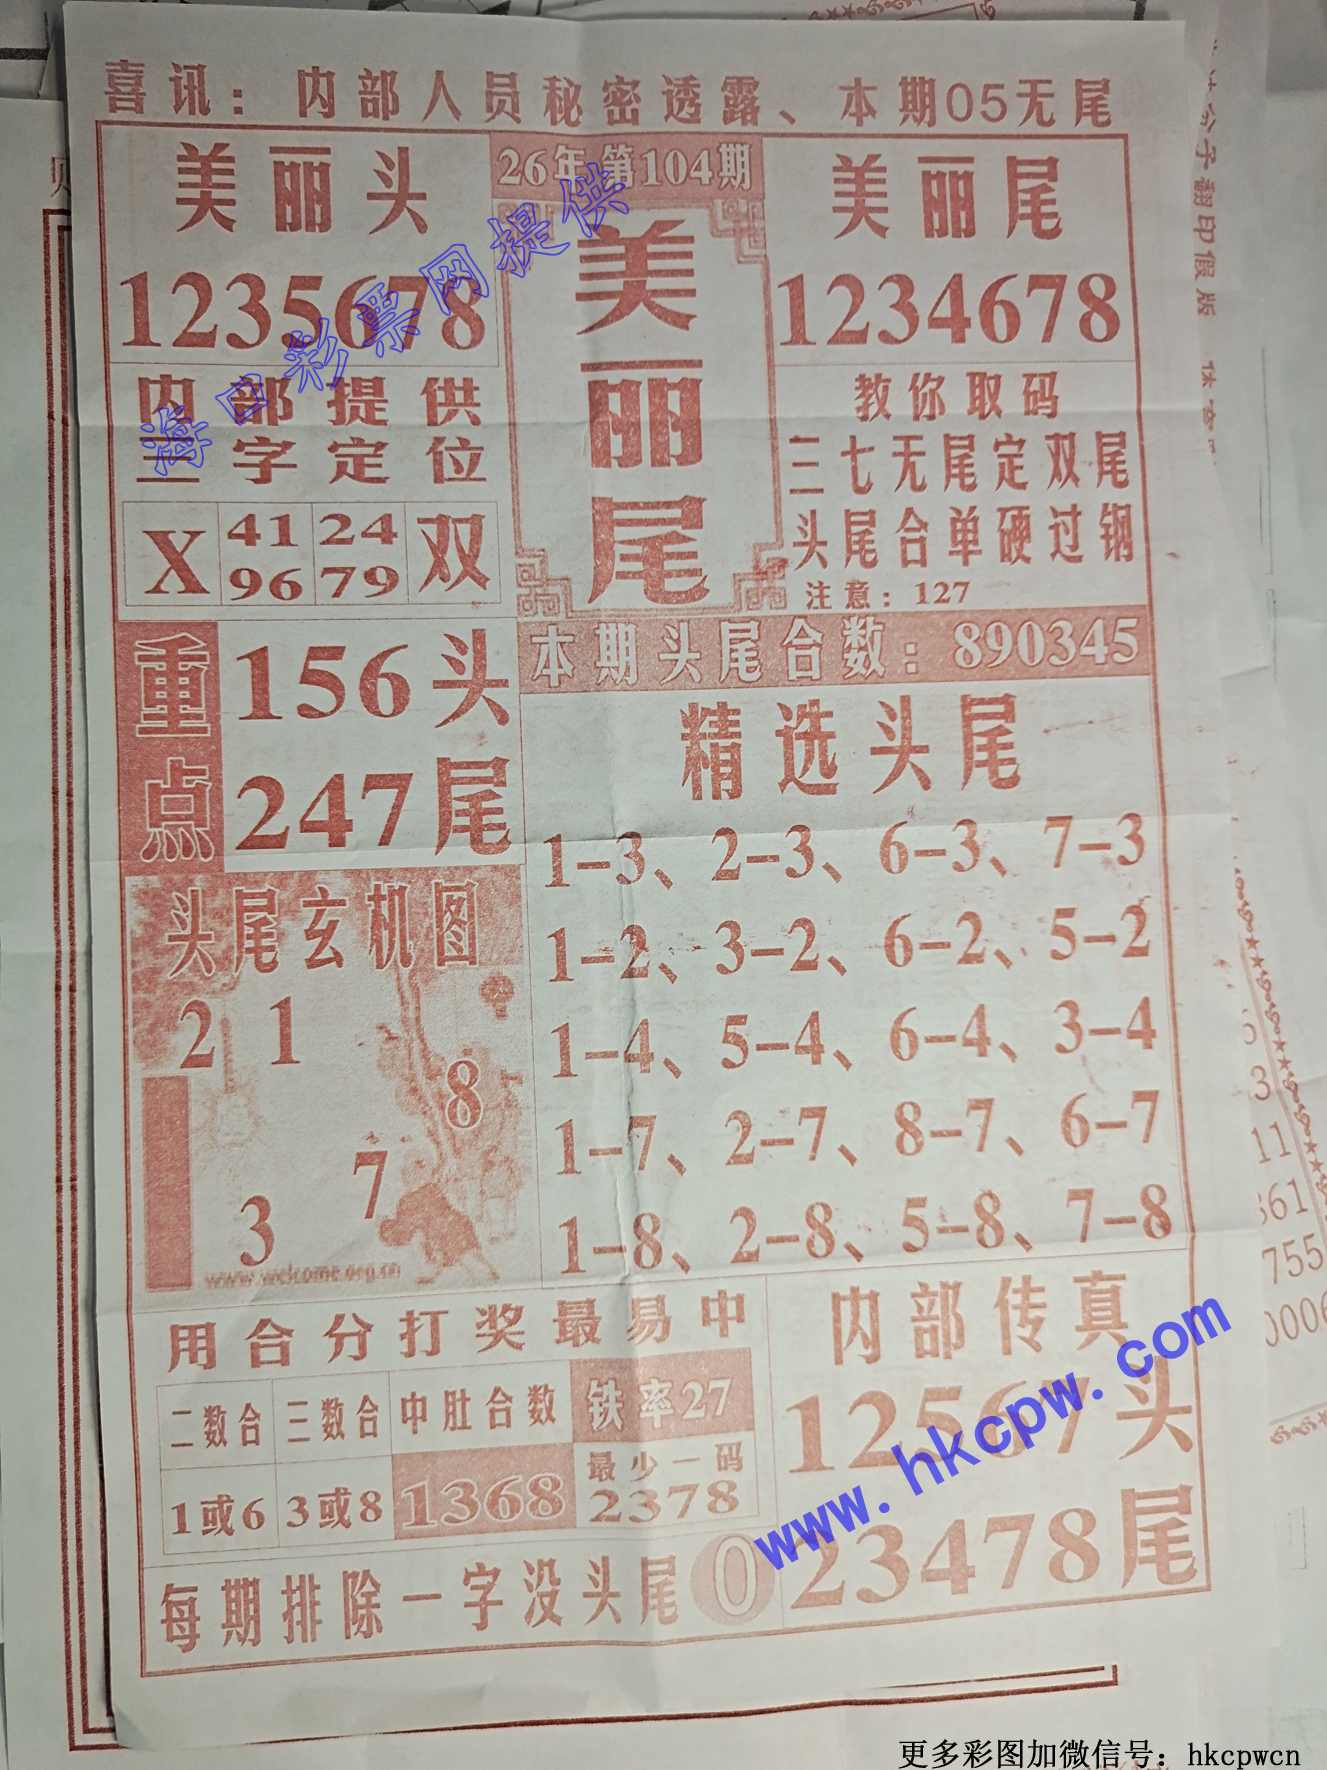 喜讯：内部人员秘密透露、本期05无尾
美丽头
1235678
26年第104期
美丽尾
美丽尾
1234678
内部提供
三字定位
X
41 24
96 79
双
教你取码
三七无尾定双尾
头尾合单硬过钢
注意：127
重点
156头
247尾
本期头尾合数：890345
精选头尾
1-3、2-3、6-3、7-3
1-2、3-2、6-2、5-2
1-4、5-4、6-4、3-4
1-7、2-7、8-7、6-7
1-8、2-8、5-8、7-8
头尾玄机图
2 1
8
7
3
www.welcome.org.cn
用合分打奖最易中
二数合 三数合 中肚合数 铁率27
1或6 3或8 1368
最少一码
2378
内部传真
12567头
23478尾
每期排除一字没头尾 0
海口彩票网提供
www.hkcpw.com
翻印假版
6
3
11
361
755
0006
更多彩图加微信号：hkcpwcn